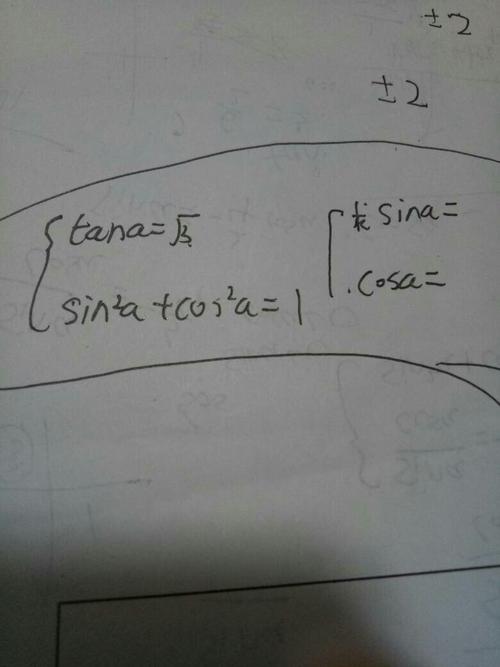 ±2
±2
tana=√3
sin²a+cos²a=1
求sina=
.cosa=